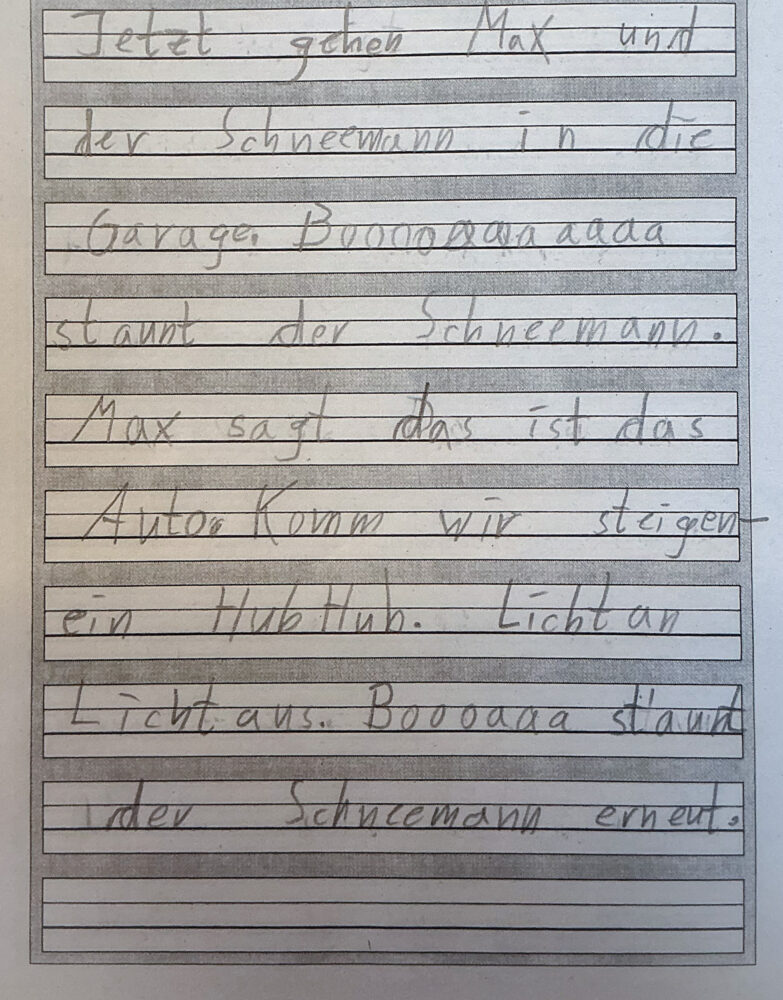 Jetzt gehen Max und
der Schneemann in die
Garage. Booooaaaaaaaa
staunt der Schneemann.
Max sagt das ist das
Auto. Komm wir steigen
ein HubHub. Licht an
Licht aus. Boooaaa staunt
der Schneemann erneut.